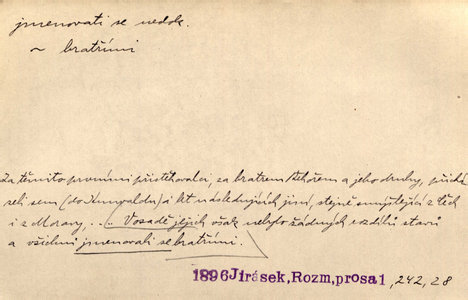 jmenovati se nedok.
~ bratřími
Za těmito prvními přistěhovalci, za bratrem Řehořem a jeho druhy, přichá-
zeli sem (do Kunwaldu) i let následujících jiní, stejně smýšlející z Čech
i z Moravy, ... V osadě jejich však nebylo žádných rozdílů stavů
a všichni jmenovali se bratřími.
1896 Jirásek, Rozm, prosa 1, 242, 28